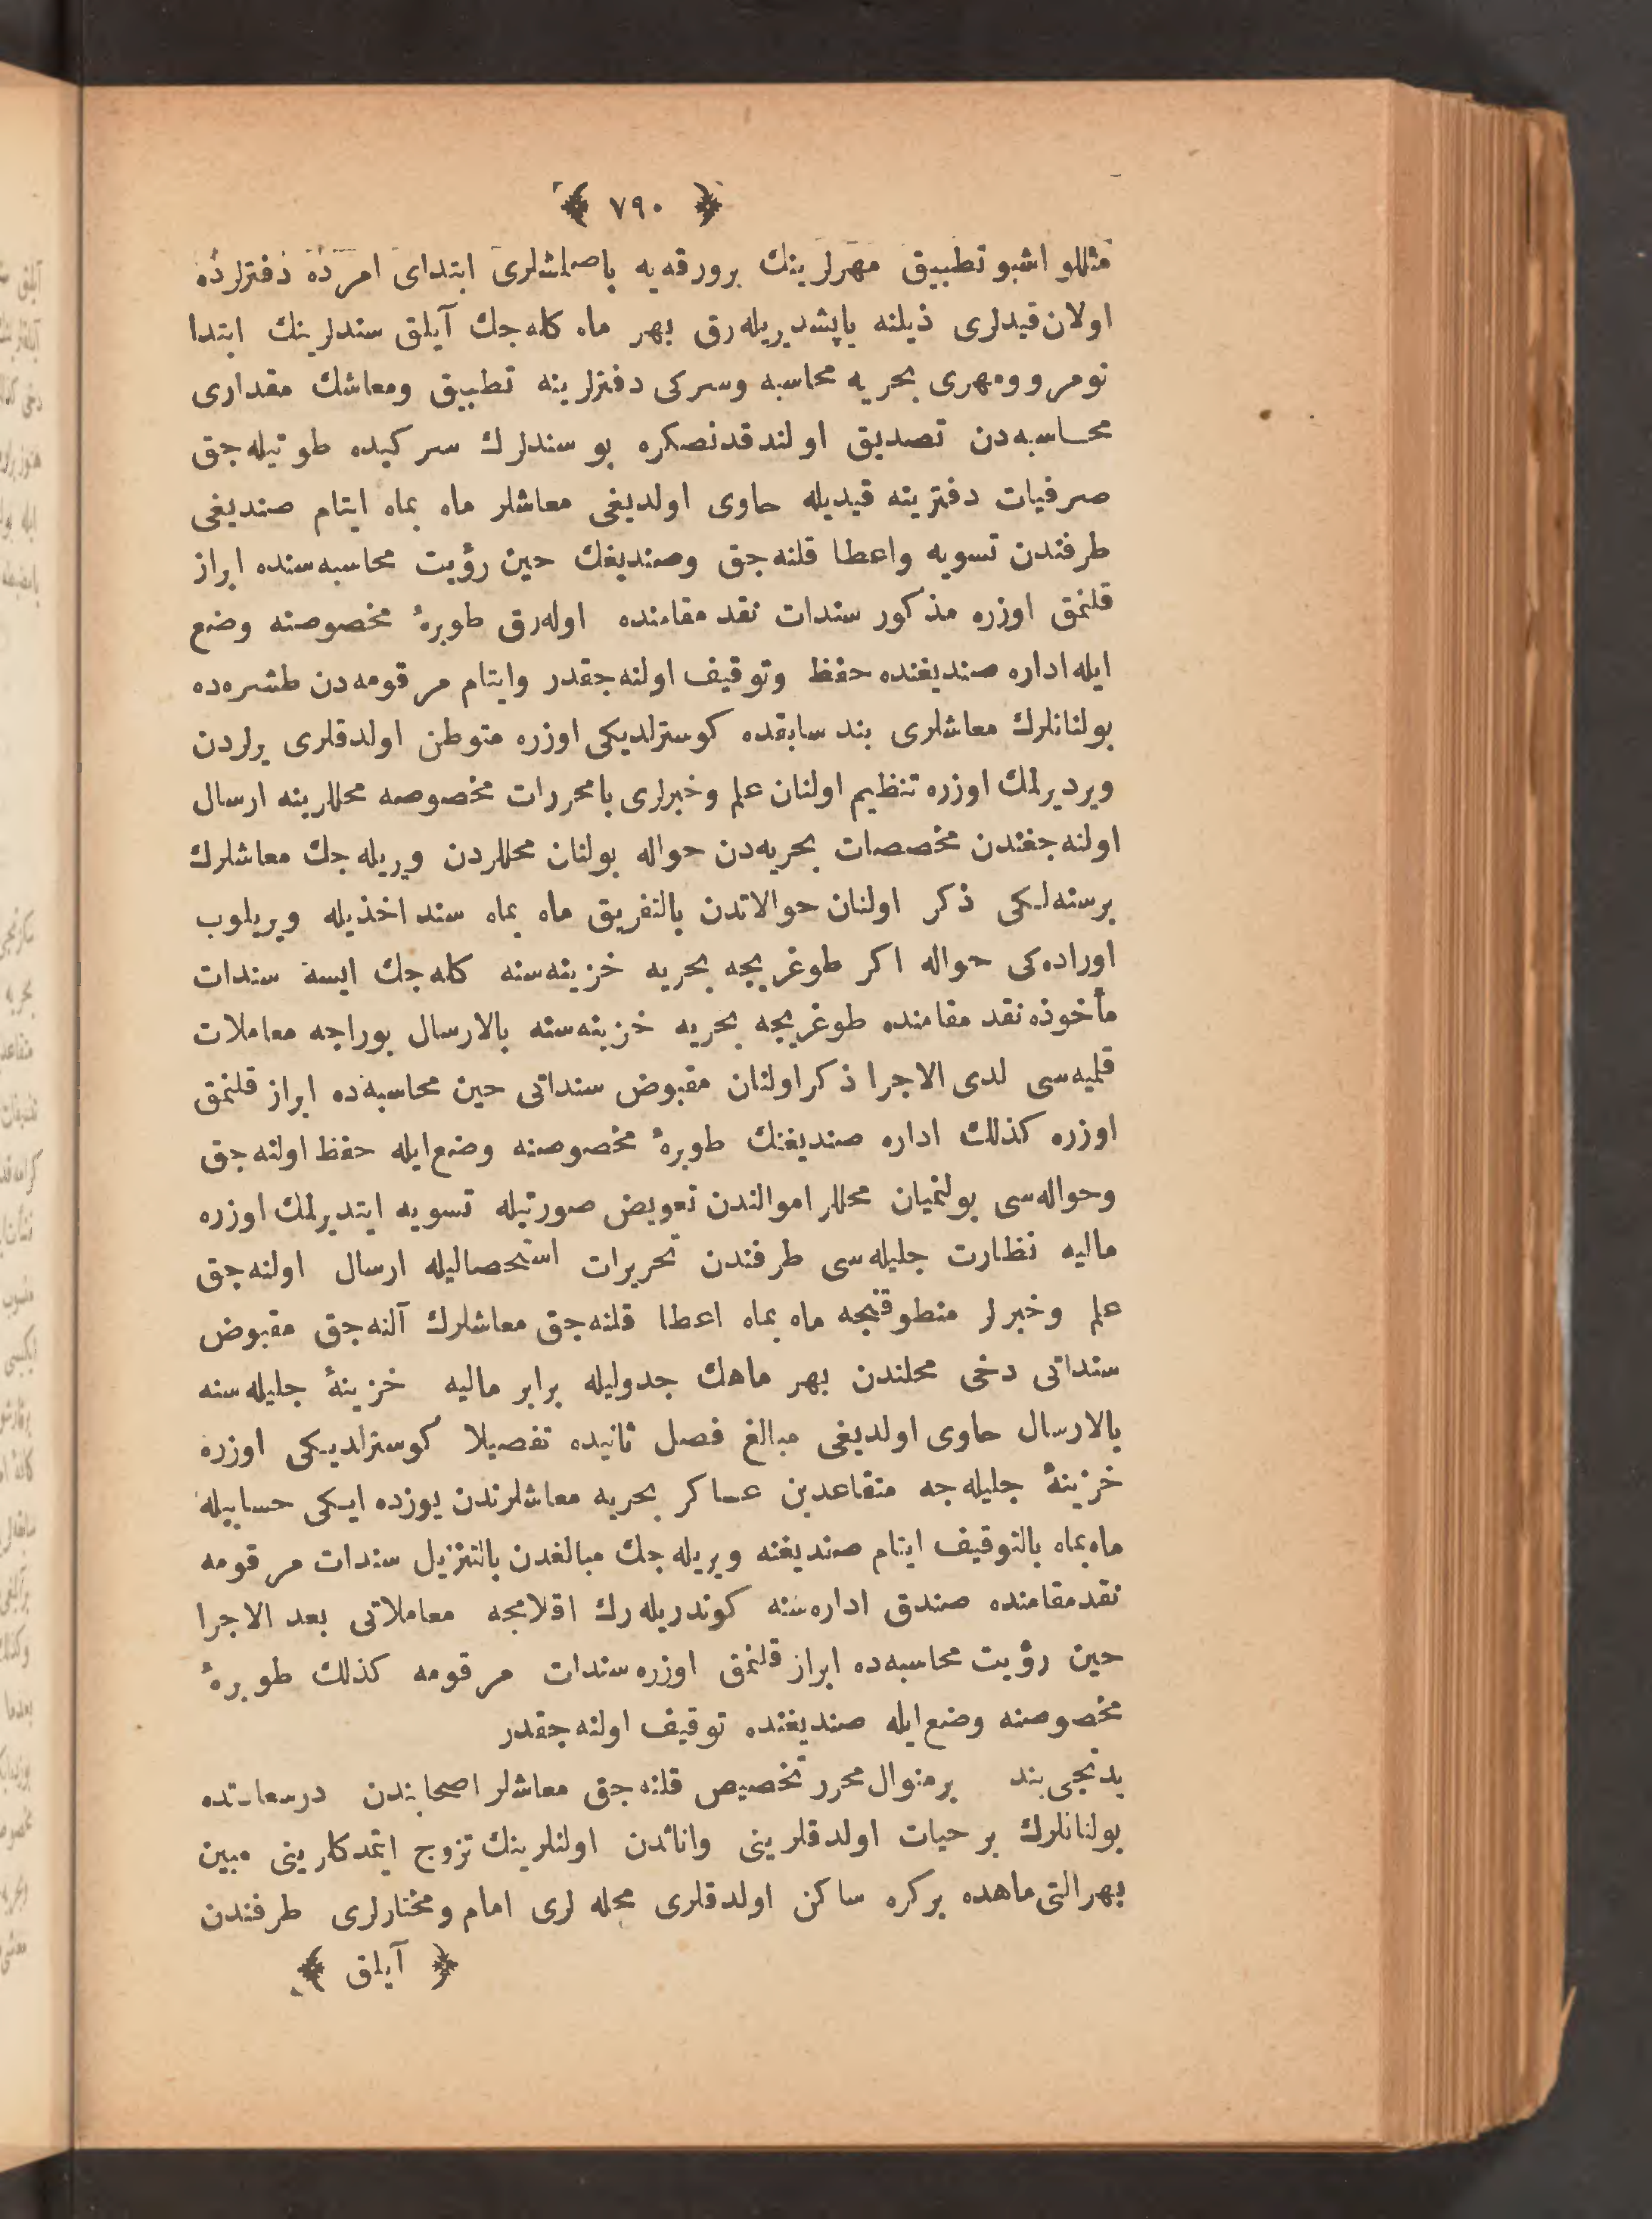 ﴿ ٧٩٠ ﴾
مثللو اشبو تطبيق مهرلرينك برورقه‌يه باصلشلرى ابتداى امرده دفترلرده
اولان قيدلرى ذيلنه ياپشديريله‌رق بهر ماه كله‌جك آيلق سندلرينك ابتدا
نومرو ومهرى بحريه محاسبه وسركى دفترلرينه تطبيق ومعاشك مقدارى
محاسبه‌دن تصديق اولندقدنصكره بو سندلرك سركيده طوتيله‌جق
صرفيات دفترينه قيديله حاوى اولديغى معاشلر ماه بماه ايتام صنديغى
طرفندن تسويه واعطا قلنه‌جق وصنديغك حين رؤيت محاسبه‌سنده ابراز
قلنمق اوزره مذكور سندات نقد مقامنده اوله‌رق طوبرهٔ مخصوصنه وضع
ايله اداره صنديغنده حفظ وتوقيف اولنه‌جقدر وايتام مرقومه‌دن طشره‌ده
بولنانلرك معاشلرى بند سابقده كوسترلديكى اوزره متوطن اولدقلرى يرلردن
ويرديرلمك اوزره تنظيم اولنان علم وخبرلرى بامحررات مخصوصه محللرينه ارسال
اولنه‌جغندن مخصصات بحريه‌دن حواله بولنان محللردن ويريله‌جك معاشلرك
برسنه‌لكى ذكر اولنان حوالاتدن بالتفريق ماه بماه سند اخذيله ويريلوب
اوراده‌كى حواله اكر طوغريجه بحريه خزينه‌سنه كله‌جك ايسه سندات
مأخوذه نقد مقامنده طوغريجه بحريه خزينه‌سنه بالارسال بوراجه معاملات
قلميه‌سى لدى الاجرا ذكر اولنان مقبوض سنداتى حين محاسبه‌ده ابراز قلنمق
اوزره كذلك اداره صنديغنك طوبرهٔ مخصوصنه وضع‌ايله حفظ اولنه‌جق
وحواله‌سى بولنميان محللر اموالندن تعويض صورتيله تسويه ايتديرلمك اوزره
ماليه نظارت جليله‌سى طرفندن تحريرات استحصاليله ارسال اولنه‌جق
علم وخبرلر منطوقنجه ماه بماه اعطا قلنه‌جق معاشلرك آلنه‌جق مقبوض
سنداتى دخى محلندن بهر ماهك جدوليله برابر ماليه خزينهٔ جليله‌سنه
بالارسال حاوى اولديغى مبالغ فصل ثانيده تفصيلا كوسترلديكى اوزره
خزينهٔ جليله‌جه متقاعدين عساكر بحريه معاشلرندن يوزده ايكى حسابيله
ماه‌بماه بالتوقيف ايتام صنديغنه ويريله‌جك مبالغدن بالتنزيل سندات مرقومه
نقد مقامنده صندق اداره‌سنه كوندريله‌رك اقلامجه معاملاتى بعد الاجرا
حين رؤيت محاسبه‌ده ابراز قلنمق اوزره سندات مرقومه كذلك طوبرهٔ
مخصوصنه وضع‌ايله صنديغنده توقيف اولنه‌جقدر
يدنجى بند برمنوال محرر تخصيص قلنه‌جق معاشلر اصحابندن درسعادتده
بولنانلرك بر حيات اولدقلرينى واناثدن اولنلرينك تزوج ايتمدكلرينى مبين
بهر التى ماهده بركره ساكن اولدقلرى محله‌لرى امام ومختارلرى طرفندن
﴿ آيلق ﴾